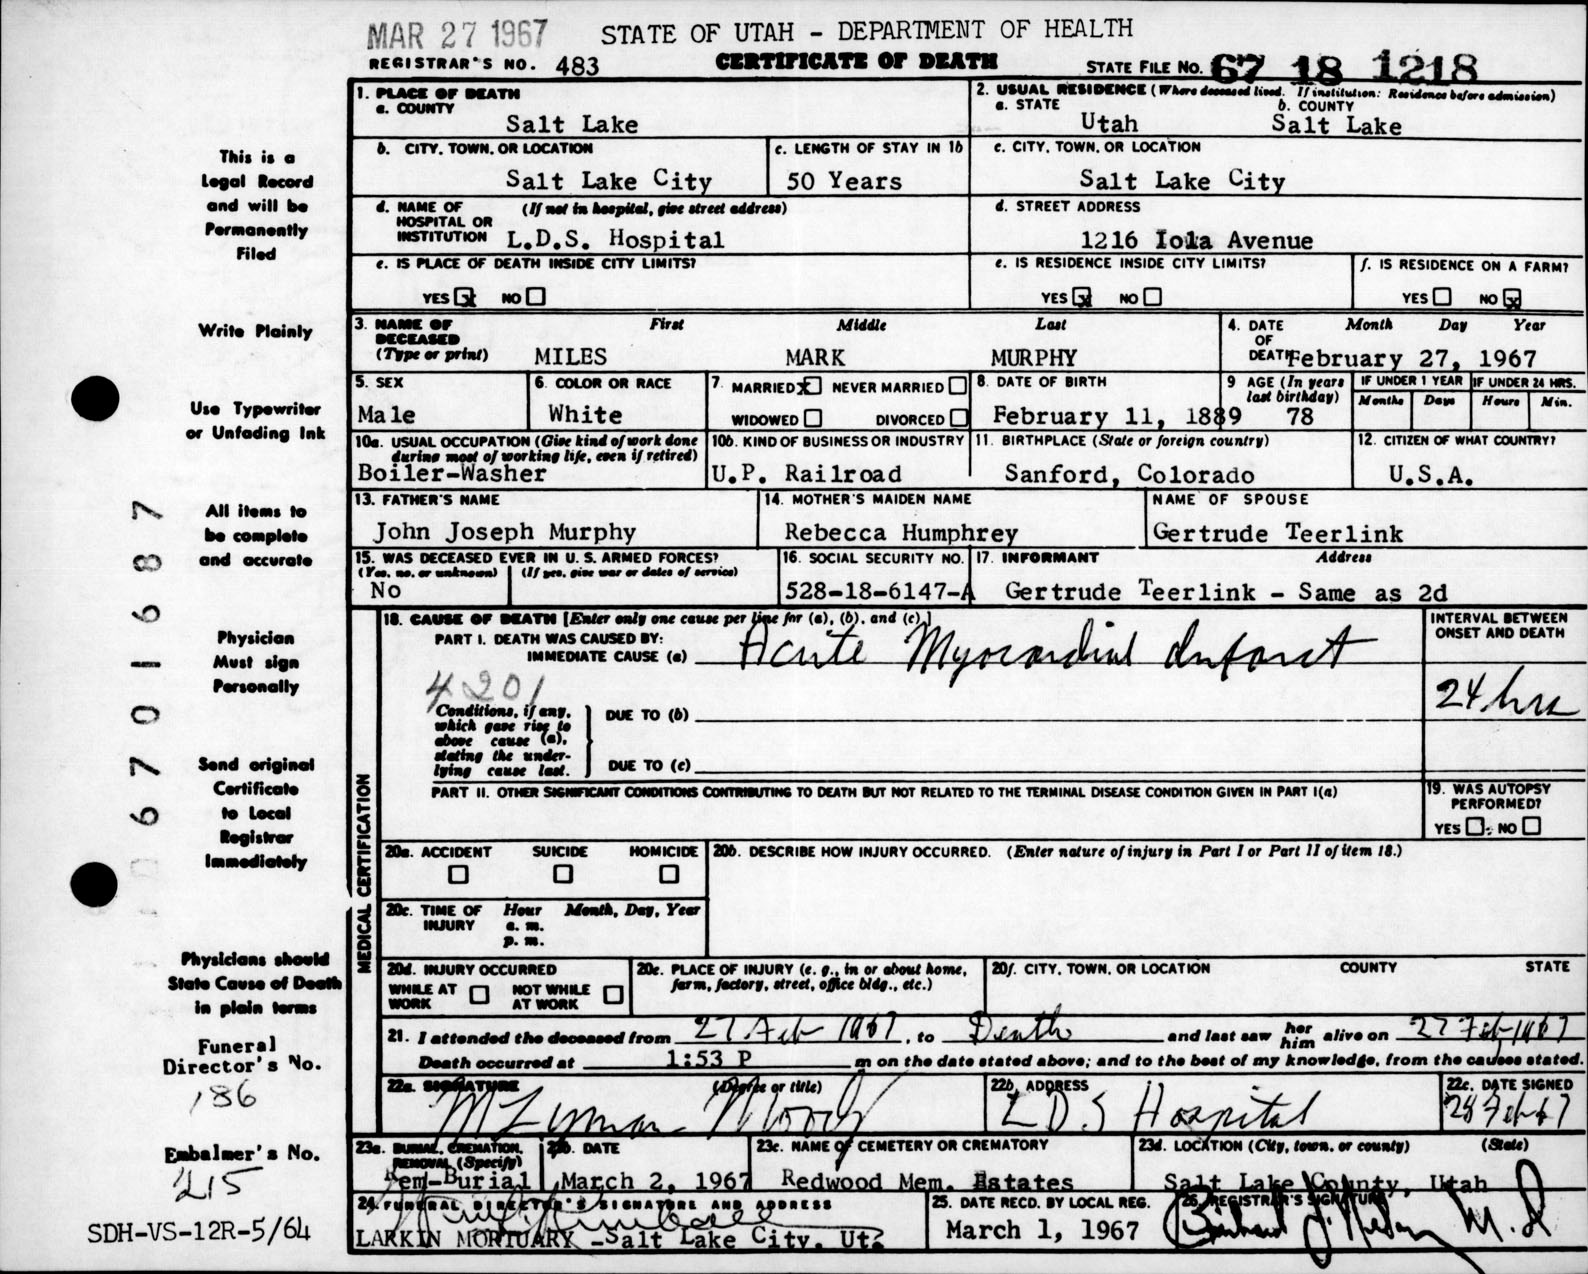 MAR 27 1967 STATE OF UTAH - DEPARTMENT OF HEALTH
REGISTRAR'S NO. 483 CERTIFICATE OF DEATH STATE FILE NO. 67 18 1218
This is a
Legal Record
and will be
Permanently
Filed
Write Plainly
Use Typewriter
or Unfading Ink
All items to
be complete
and accurate
Physician
Must sign
Personally
Send original
Certificate
to Local
Registrar
Immediately
Physicians should
State Cause of Death
in plain terms
Funeral
Director's No.
186
Embalmer's No.
215
SDH-VS-12R-5/64
0 6 7 0 1 6 8 7
1. PLACE OF DEATH
a. COUNTY
Salt Lake
2. USUAL RESIDENCE (Where deceased lived. If institution: Residence before admission)
a. STATE b. COUNTY
Utah Salt Lake
b. CITY, TOWN, OR LOCATION
Salt Lake City
c. LENGTH OF STAY IN 1b
50 Years
c. CITY, TOWN, OR LOCATION
Salt Lake City
d. NAME OF (If not in hospital, give street address)
HOSPITAL OR
INSTITUTION L.D.S. Hospital
d. STREET ADDRESS
1216 Iola Avenue
e. IS PLACE OF DEATH INSIDE CITY LIMITS?
YES x NO
e. IS RESIDENCE INSIDE CITY LIMITS?
YES x NO
f. IS RESIDENCE ON A FARM?
YES NO x
3. NAME OF First Middle Last
DECEASED
(Type or print) MILES MARK MURPHY
4. DATE Month Day Year
OF
DEATH February 27, 1967
5. SEX
Male
6. COLOR OR RACE
White
7. MARRIED x NEVER MARRIED
WIDOWED DIVORCED
8. DATE OF BIRTH
February 11, 1889
9 AGE (In years
last birthday)
78
IF UNDER 1 YEAR IF UNDER 24 HRS.
Months Days Hours Min.
10a. USUAL OCCUPATION (Give kind of work done
during most of working life, even if retired)
Boiler-Washer
10b. KIND OF BUSINESS OR INDUSTRY
U.P. Railroad
11. BIRTHPLACE (State or foreign country)
Sanford, Colorado
12. CITIZEN OF WHAT COUNTRY?
U.S.A.
13. FATHER'S NAME
John Joseph Murphy
14. MOTHER'S MAIDEN NAME
Rebecca Humphrey
NAME OF SPOUSE
Gertrude Teerlink
15. WAS DECEASED EVER IN U. S. ARMED FORCES?
(Yes, no, or unknown) (If yes, give war or dates of service)
No
16. SOCIAL SECURITY NO.
528-18-6147-A
17. INFORMANT Address
Gertrude Teerlink - Same as 2d
MEDICAL CERTIFICATION
18. CAUSE OF DEATH [Enter only one cause per line for (a), (b), and (c).]
PART I. DEATH WAS CAUSED BY:
IMMEDIATE CAUSE (a) Acute Myocardial Infarct
INTERVAL BETWEEN
ONSET AND DEATH
24 hrs
4201
Conditions, if any,
which gave rise to
above cause (a),
stating the under-
lying cause last.
DUE TO (b)
DUE TO (c)
PART II. OTHER SIGNIFICANT CONDITIONS CONTRIBUTING TO DEATH BUT NOT RELATED TO THE TERMINAL DISEASE CONDITION GIVEN IN PART I(a)
19. WAS AUTOPSY
PERFORMED?
YES NO
20a. ACCIDENT SUICIDE HOMICIDE
20b. DESCRIBE HOW INJURY OCCURRED. (Enter nature of injury in Part I or Part II of item 18.)
20c. TIME OF Hour Month, Day, Year
INJURY a. m.
p. m.
20d. INJURY OCCURRED
WHILE AT WORK NOT WHILE AT WORK
20e. PLACE OF INJURY (e. g., in or about home,
farm, factory, street, office bldg., etc.)
20f. CITY, TOWN, OR LOCATION COUNTY STATE
21. I attended the deceased from 27 Feb 1967, to Death and last saw her him alive on 27 Feb 1967
Death occurred at 1:53 P m on the date stated above; and to the best of my knowledge, from the causes stated.
22a. SIGNATURE (Degree or title)
M Lyman Moody
22b. ADDRESS
LDS Hospital
22c. DATE SIGNED
28 Feb 67
23a. BURIAL, CREMATION,
REMOVAL (Specify)
Rem-Burial
23b. DATE
March 2, 1967
23c. NAME OF CEMETERY OR CREMATORY
Redwood Mem. Estates
23d. LOCATION (City, town, or county) (State)
Salt Lake County, Utah
24. FUNERAL DIRECTOR'S SIGNATURE AND ADDRESS
LARKIN MORTUARY -Salt Lake City, Ut.
25. DATE RECD. BY LOCAL REG.
March 1, 1967
26. REGISTRAR'S SIGNATURE
M.D